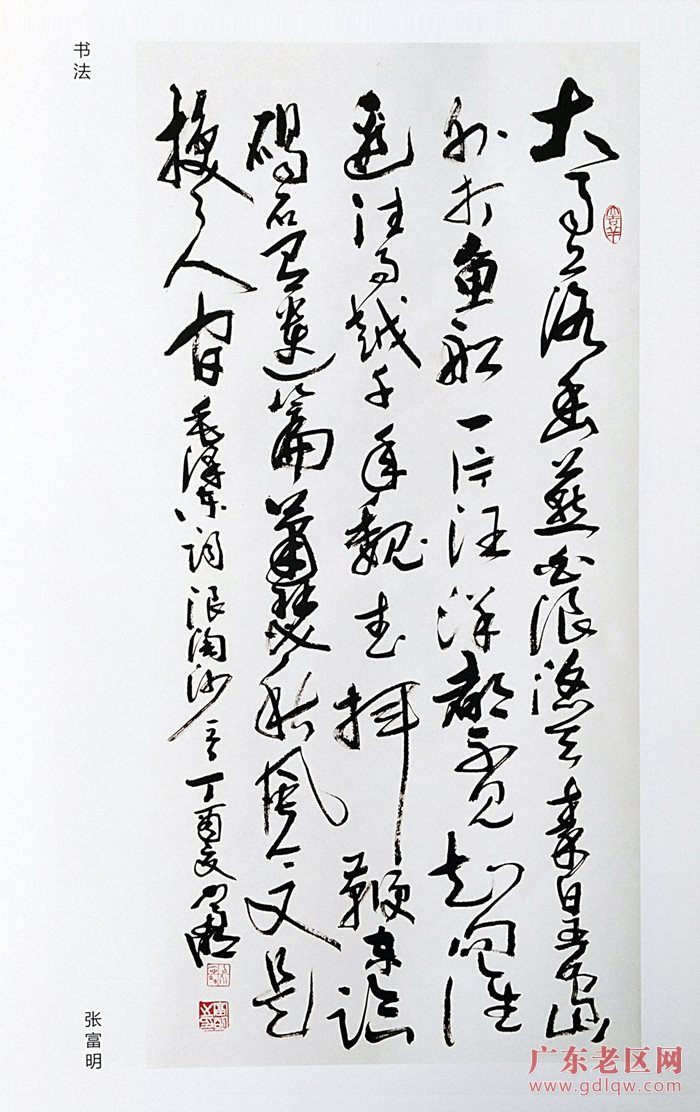 书法
大雨落幽燕白浪滔天秦皇島
外打魚船一片汪洋都不見知向誰
邊往事越千年魏武揮鞭東臨
碣石有遺篇蕭瑟秋風今又是
換了人間毛澤東詞浪淘沙一首丁酉夏富明
张富明
广东老区网
www.gdlqw.com